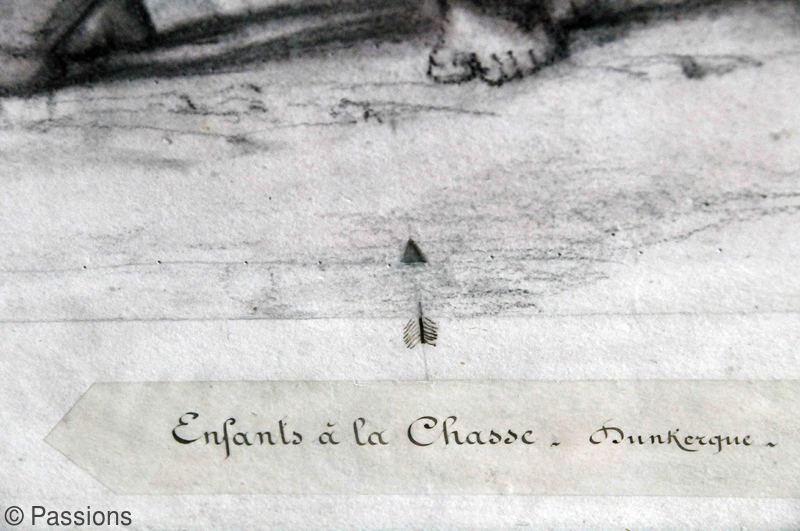 Enfants à la Chasse. Dunkerque.
© Passions